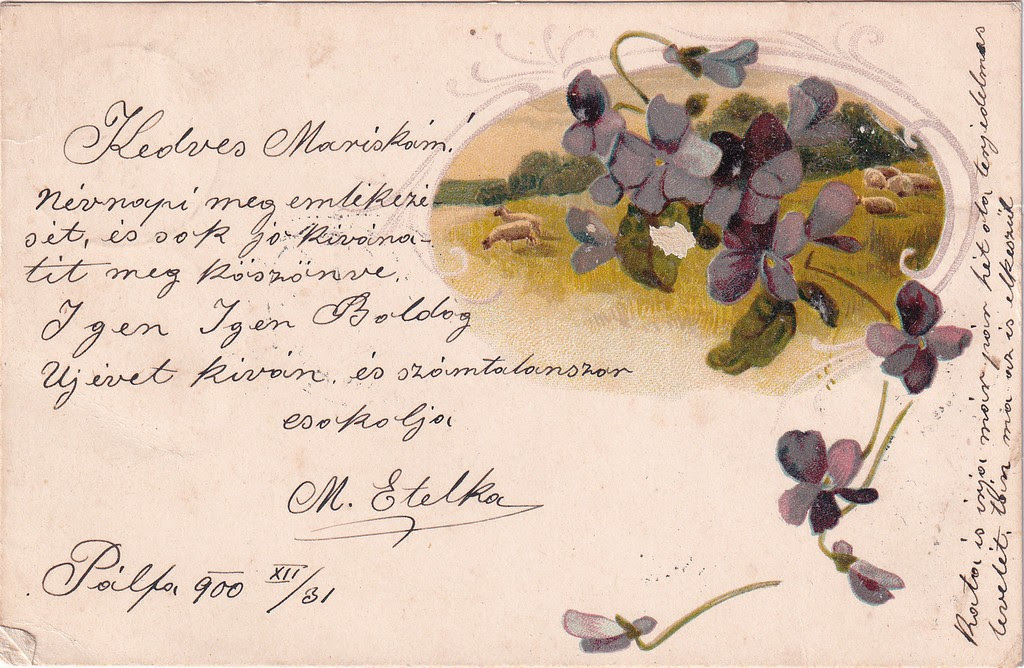 Kedves Mariskám!
Névnapi meg emlékezé
sét, és sok jó kivána-
tit meg köszönve,
Igen Igen Boldog
Ujévet kiván, és számtalanszor
csokolja
M. Etelka
Pálfa 900 XII/31
Kata is irja már pár hét óta terjedelmas
levelét, tán ma az is elkészül